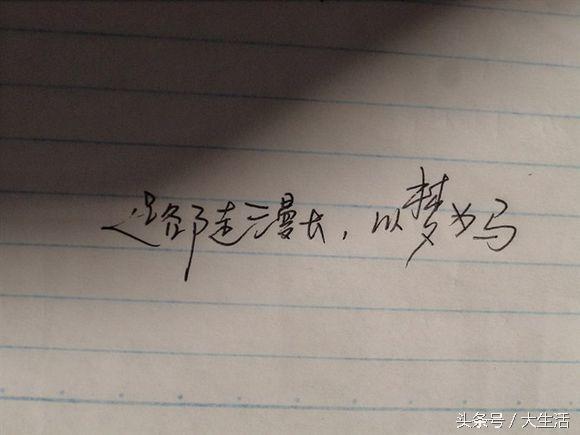 漫长，以梦为马
头条号／大生活